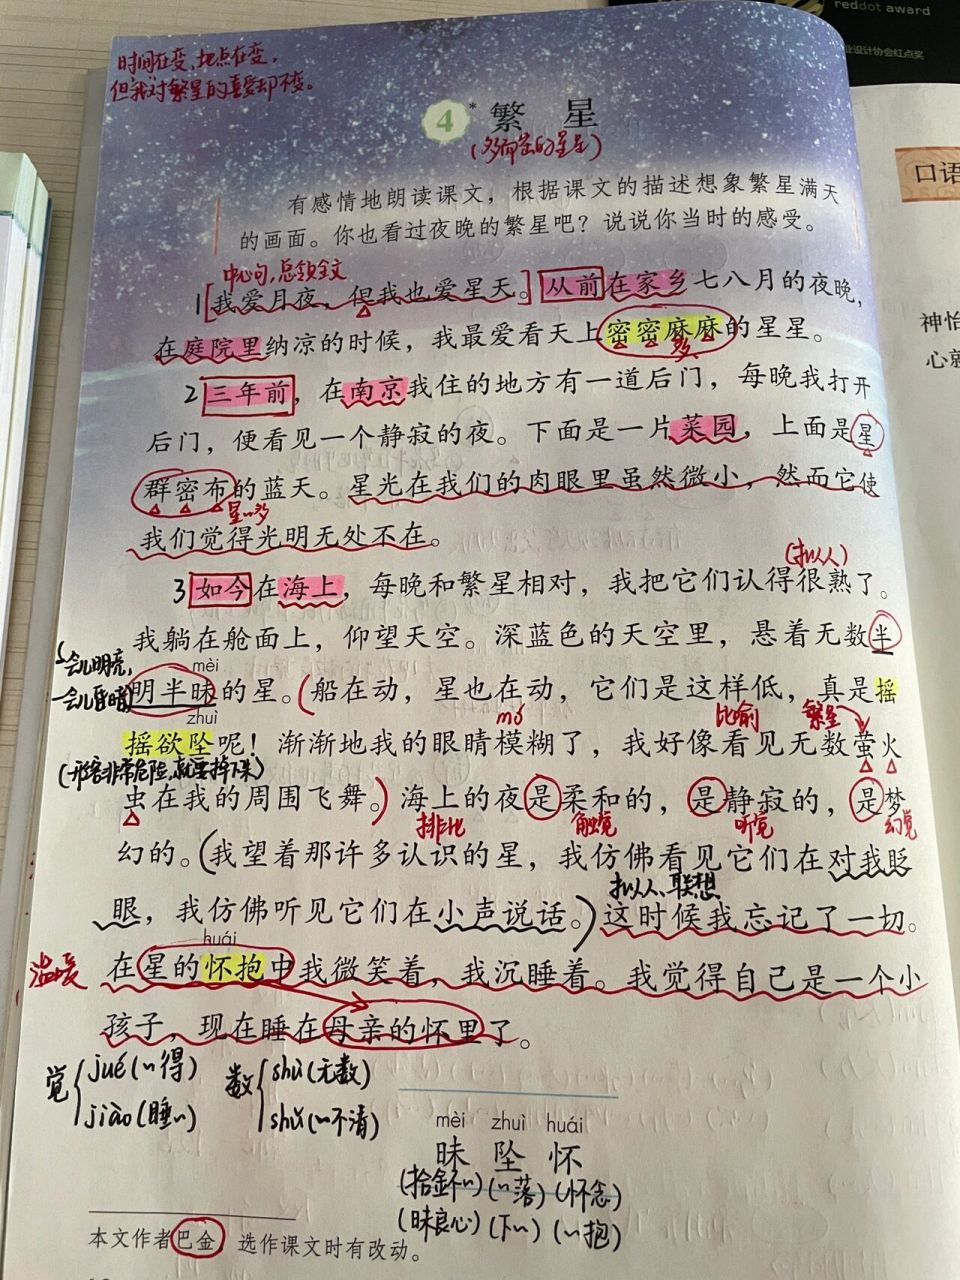 reddot award
业设计协会红点奖
时间在变、地点在变,
但我对繁星的喜爱却不变。
4 * 繁 星
(多而密的星星)
口语
有感情地朗读课文，根据课文的描述想象繁星满天
的画面。你也看过夜晚的繁星吧？说说你当时的感受。
中心句,总领全文
1[我爱月夜，但我也爱星天。]从前在家乡七八月的夜晚，
在庭院里纳凉的时候，我最爱看天上密密麻麻的星星。
多
神怡
心就
2 三年前，在南京我住的地方有一道后门，每晚我打开
后门，便看见一个静寂的夜。下面是一片菜园，上面是星
群密布的蓝天。星光在我们的肉眼里虽然微小，然而它使
星儿多
我们觉得光明无处不在。
(拟人)
3 如今在海上，每晚和繁星相对，我把它们认得很熟了。
我躺在舱面上，仰望天空。深蓝色的天空里，悬着无数半
一会儿明亮,
mèi
一会儿昏暗
明半昧的星。(船在动，星也在动，它们是这样低，真是摇
zhuì
mó 比喻 繁星
摇欲坠呢！渐渐地我的眼睛模糊了，我好像看见无数萤火
(形容非常危险,就要掉下来)
虫在我的周围飞舞。)海上的夜是柔和的，是静寂的，是梦
排比 触觉 听觉 幻觉
幻的。(我望着那许多认识的星，我仿佛看见它们在对我眨
拟人、联想
眼，我仿佛听见它们在小声说话。)这时候我忘记了一切。
huái
温暖
在星的怀抱中我微笑着，我沉睡着。我觉得自己是一个小
孩子，现在睡在母亲的怀里了。
觉 jué(~得)
jiào(睡~)
数 shù(无数)
shǔ(~不清)
mèi zhuì huái
昧 坠 怀
(拾金不~) (~落) (怀念)
(昧良心) (下~) (~抱)
本文作者巴金，选作课文时有改动。